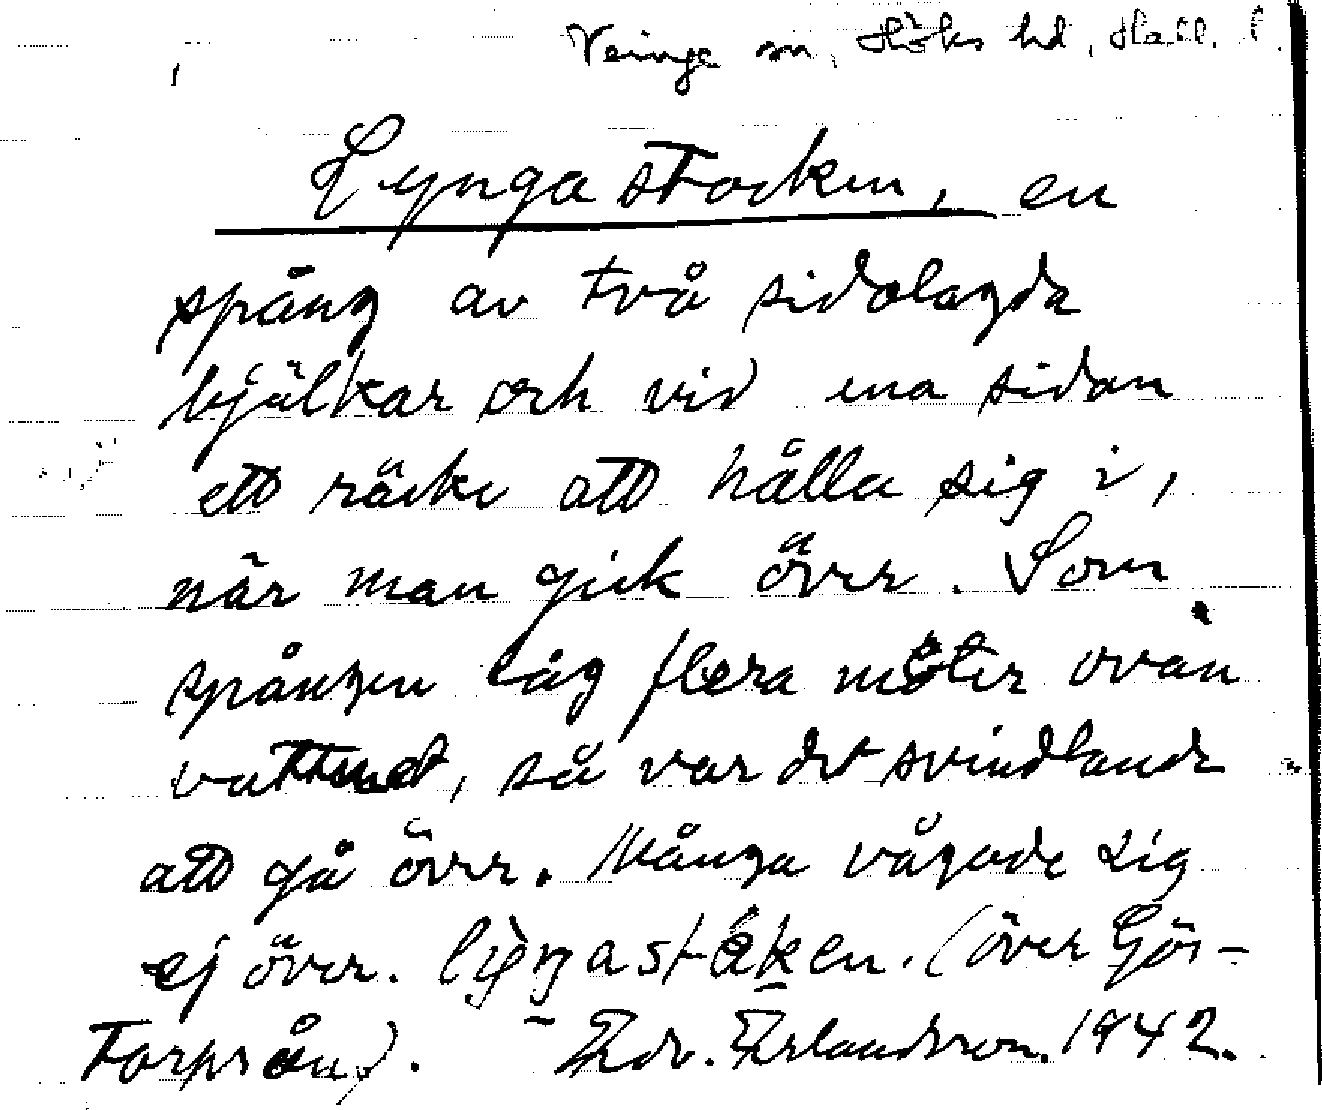 Veinge sn, Höks hd, Hall. l.
Lyngastocken, en
spång av två sidolagda
bjälkar och vid ena sidan
ett räcke att hålla sig i,
när man gick över. Som
spången låg flera meter ovan
vattnet, så var det svindlande
att gå över. Många vågade sig
ej över. (över Gös-
torpsån). Erlandsson. 1942.